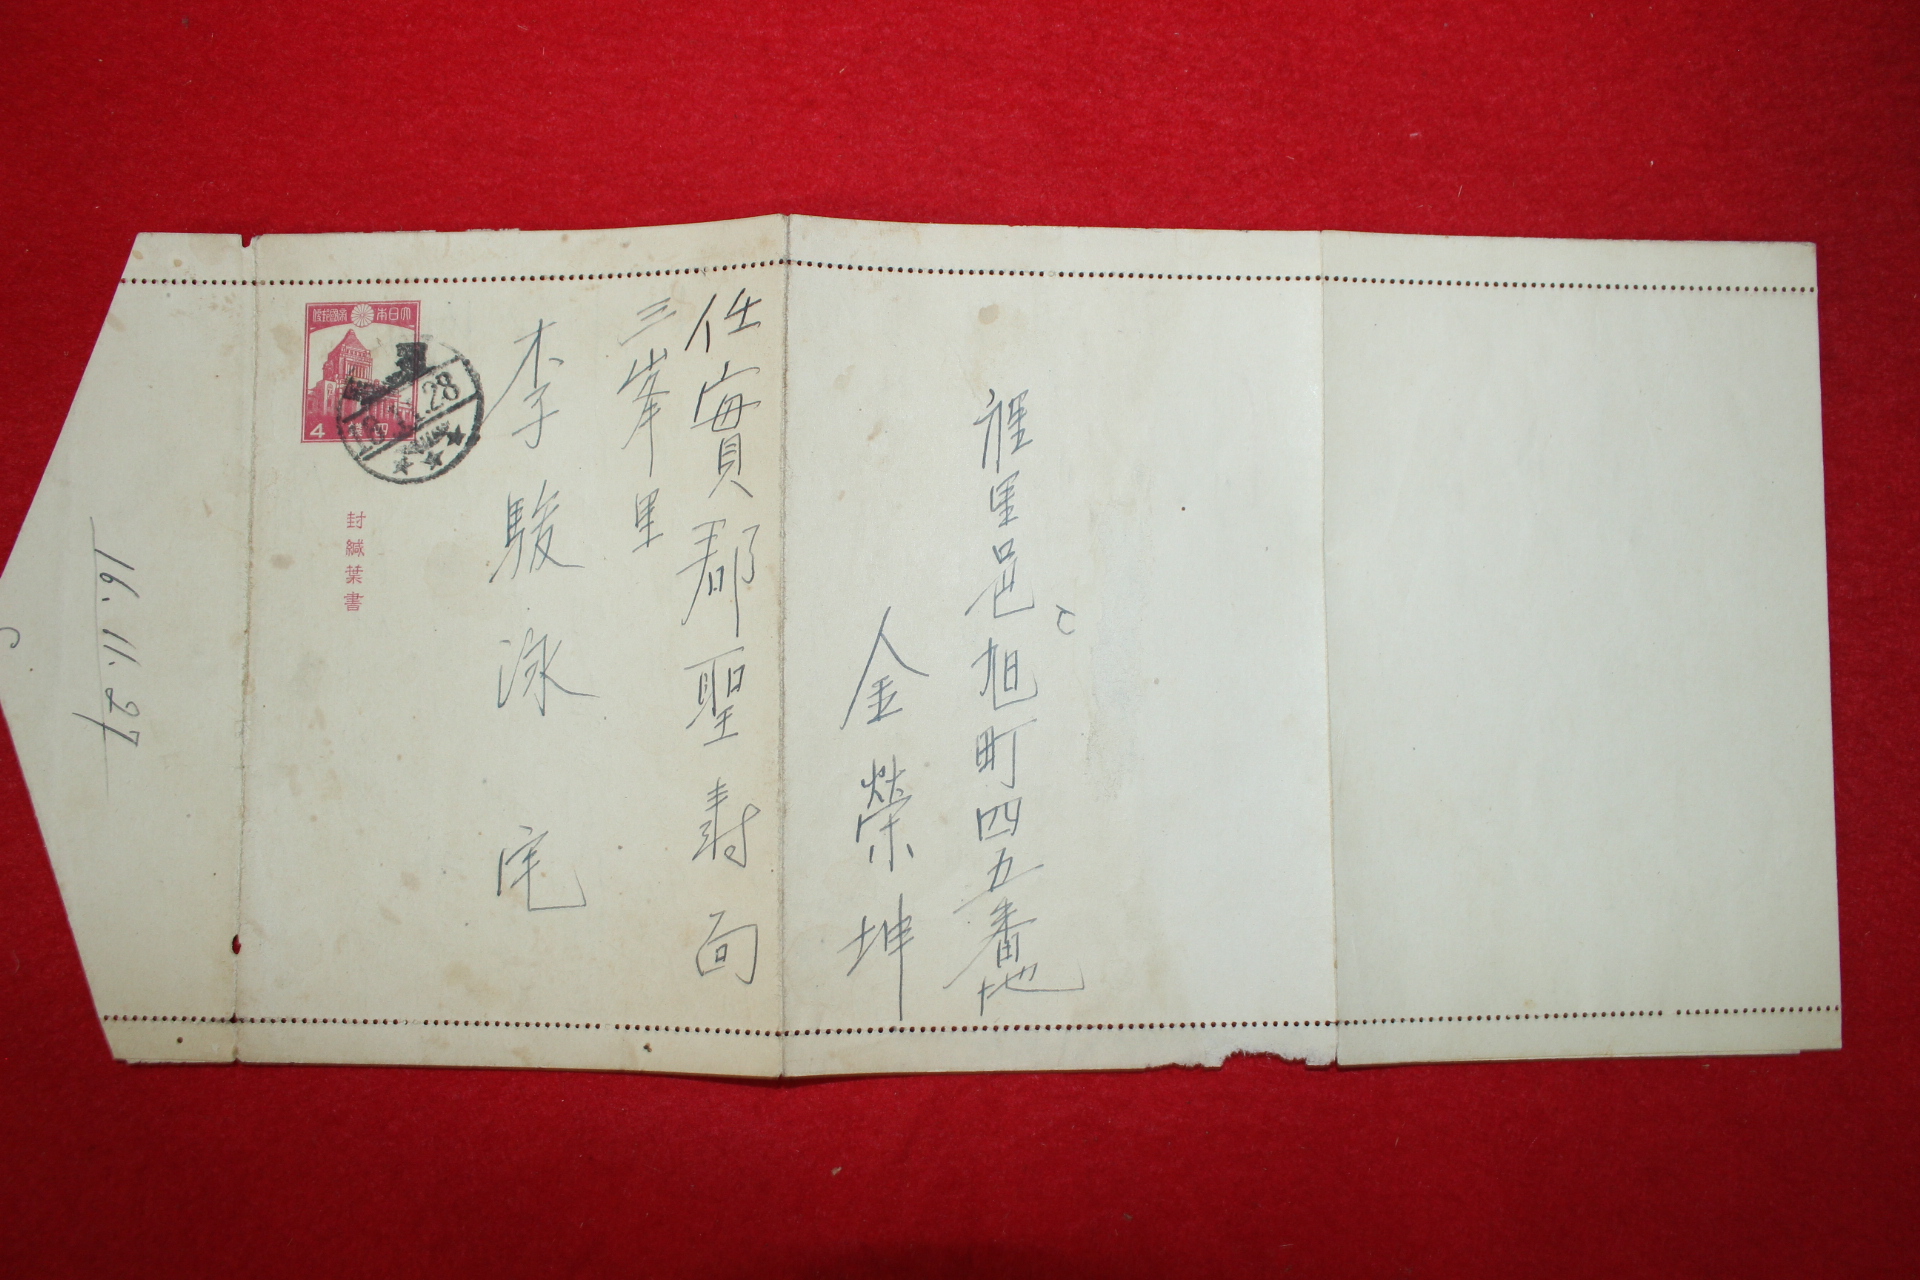 裡里邑旭町四五番地
金榮坤
任實郡聖壽面
三峯里
李駿泳 宅
大日本帝國郵便
4 四錢
28
封緘葉書
16. 11. 27